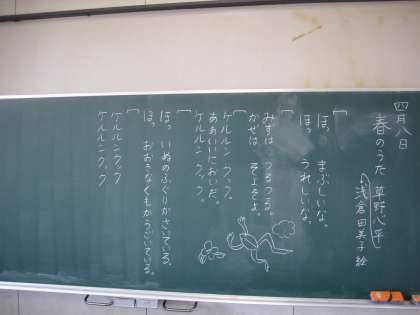 四月八日
春のうた 草野心平
浅倉田美子 絵
ほっ まぶしいな。
ほっ うれしいな。
みずは つるつる。
かぜは そよそよ。
ケルルン クック。
ああいいにおいだ。
ケルルン クック。
ほっ いぬのふぐりがさいている。
ほっ おおきなくもがうごいている。
ケルルン クック
ケルルン クック